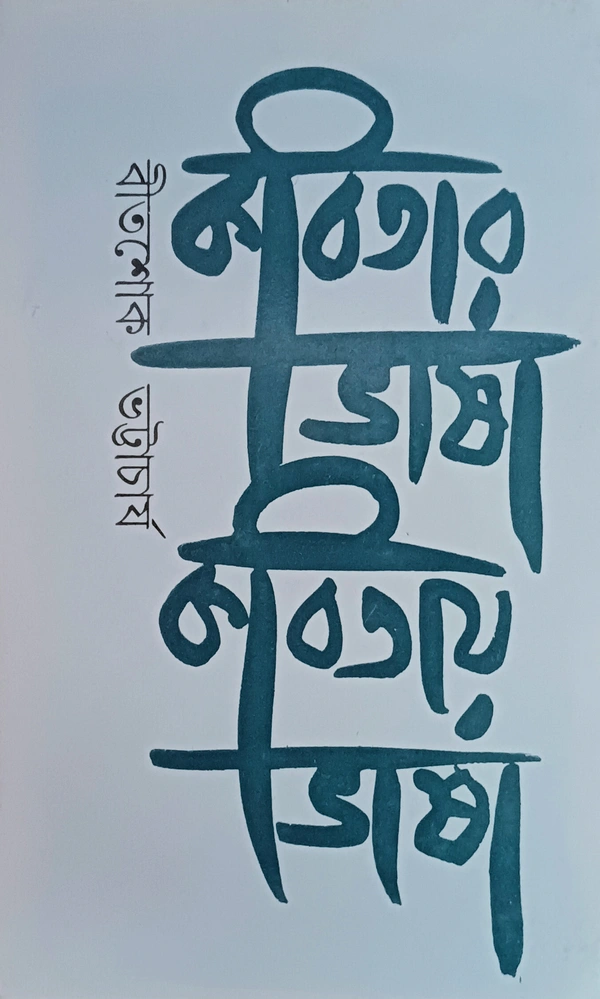 কবিতার
ভাষা
কবিতায়
ভাষা
বীতশোক ভট্টাচার্য